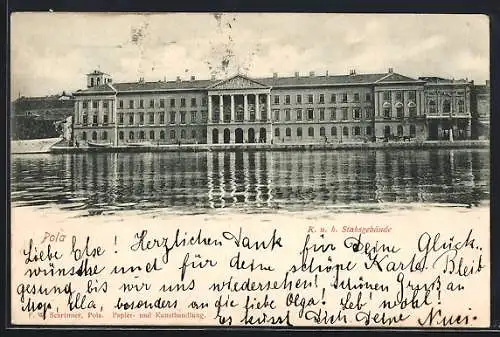 Pola
K. u. k. Stabsgebäude
Liebe Else! Herzlichen Dank für Deine Glück-
wünsche und für deine schöne Karte. Bleib
gesund bis wir uns wiedersehen! Schönen Gruß an
Ella, besonders an die liebe Olga! Leb' wohl!
Es küsst Dich Deine
F. W. Schrinner, Pola. Papier- und Kunsthandlung.